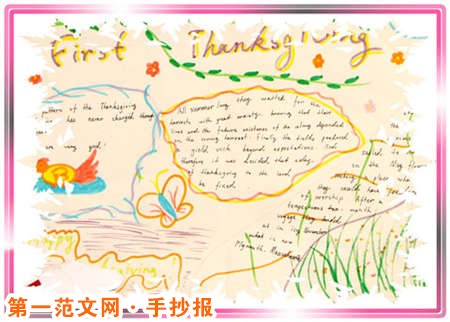 First Thanksgiving
pattern of the Thanksgiving
has never changed though
very good.
All summer long they waited for the
harvests with great anxiety, knowing that their
lives and the future existence of the colony depended
on the coming harvest. Finally the fields produced
a yield rich beyond expectations. And
therefore it was decided that a day
of thanksgiving to the Lord
be fixed.
the
in the May flower
a place where
they could have freedom
of worship. After a
tempestuous two-month
voyage they landed
at in icy November,
what is now
Plymouth,
giving
第一范文网·手抄报